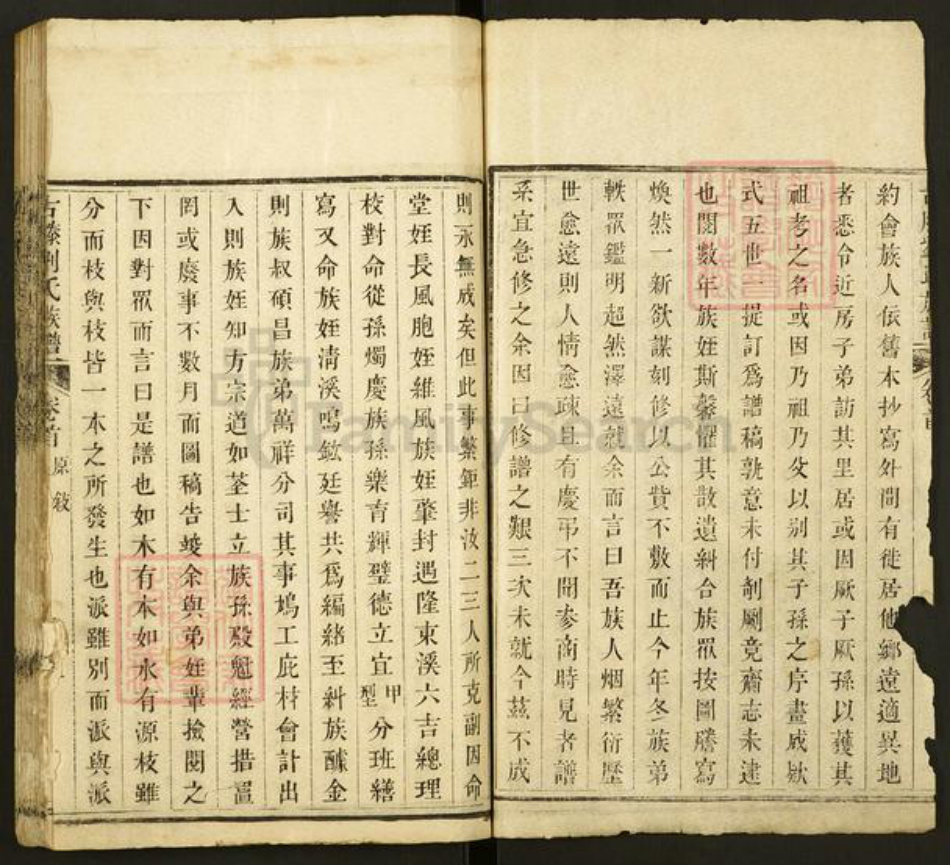 約會族人依舊本抄寫外間有徙居他鄉遠適異地
者悉令近房子弟訪其里居或因厥子厥孫以護其
祖考之名或因乃祖乃父以别其子孫之序畫成欵
式五世一提訂爲譜稿孰意未付剞劂竟齋志未逮
也閱數年族姪斯馨懼其散遺糾合族眾按圖謄寫
煥然一新欲謀刻修以公貲不敷而止今年冬族弟
軼眾鑑明超然澤遠就余而言曰吾族人烟繁衍歷
世愈遠則人情愈疎且有慶弔不聞參商時見者譜
系宜急修之余因曰修譜之艱三次未就今茲不成
則永無成矣但此事繁鉅非汝二三人所克副因命
堂姪長風胞姪維風族姪肇封遇隆東溪六吉總理
校對命從孫燭慶族孫樂育輝璧德立宜甲型分班繕
寫又命族姪清溪鳴欽廷譽共爲編緒至糾族醵金
則族叔碩昌族弟萬祥分司其事鳩工庇材會計出
入則族姪知方宗道如荃士立族孫殿魁經營措置
罔或廢事不數月而圖稿告竣余與弟姪輩撿閱之
下因對眾而言曰是譜也如木有本如水有源枝雖
分而枝與枝皆一本之所發生也派雖别而派與派
古滕劉氏族譜 卷首 原敘
FamilySearch